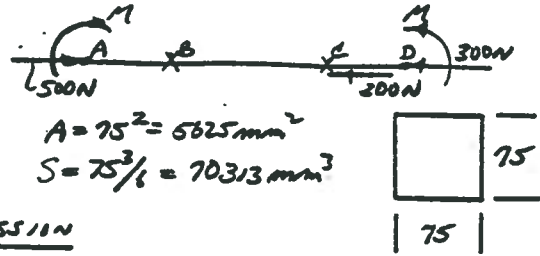 M M
A B C D 300N
500N 200N
A = 75² = 5625 mm²
S = 75³/6 = 70313 mm³
75
SSION
75